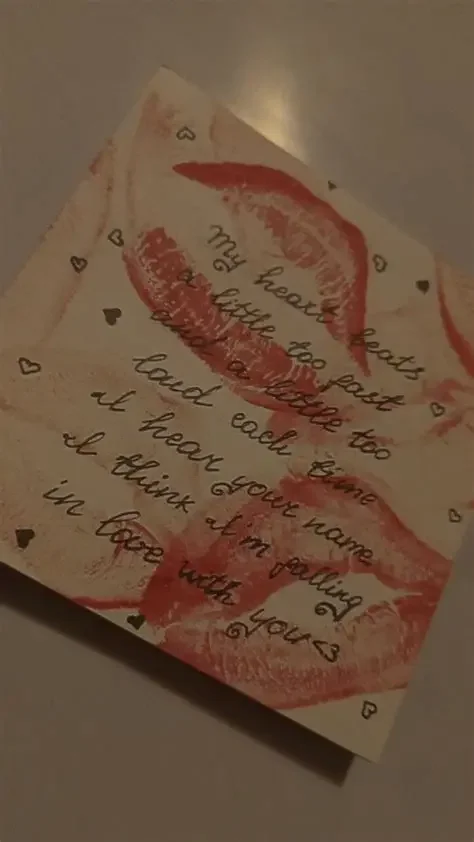 My heart beats
a little too fast
and a little too
loud each time
I hear your name
I think I'm falling
in love with you<3